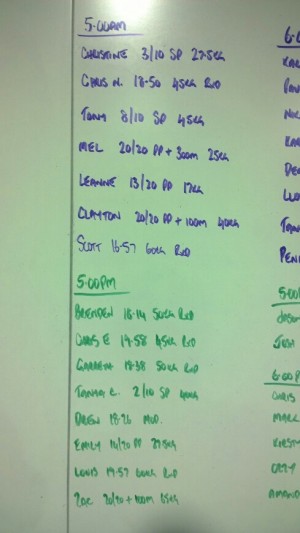 5:00AM
CHRISTINE 3/10 SP 27.5KG
CHRIS N. 18-50 45KG RXD
TONY 8/10 SP 45KG
MEL 20/20 PP + 300M 25KG
LEANNE 13/20 PP 17KG
CLAYTON 20/20 PP + 100M 40KG
SCOTT 16-57 60KG RXD
5:00PM
BRENDEN 18-14 50KG RXD
CHRIS E 19-58 45KG RXD
GARRETH 18-38 50KG RXD
2/10 SP
DREW 18-26 MOD.
EMILY 16/20 PP 27.5KG
LOUIS 19-57 60KG RXD
ZOE 20/20 + 100M 15KG
6:0
KAR
PAU
NIC
KAR
DEA
LUD
TAN
PENI
5:00
JASON
JOSH
6:00P
CHRIS
MARK
KIRSTY
AMAND